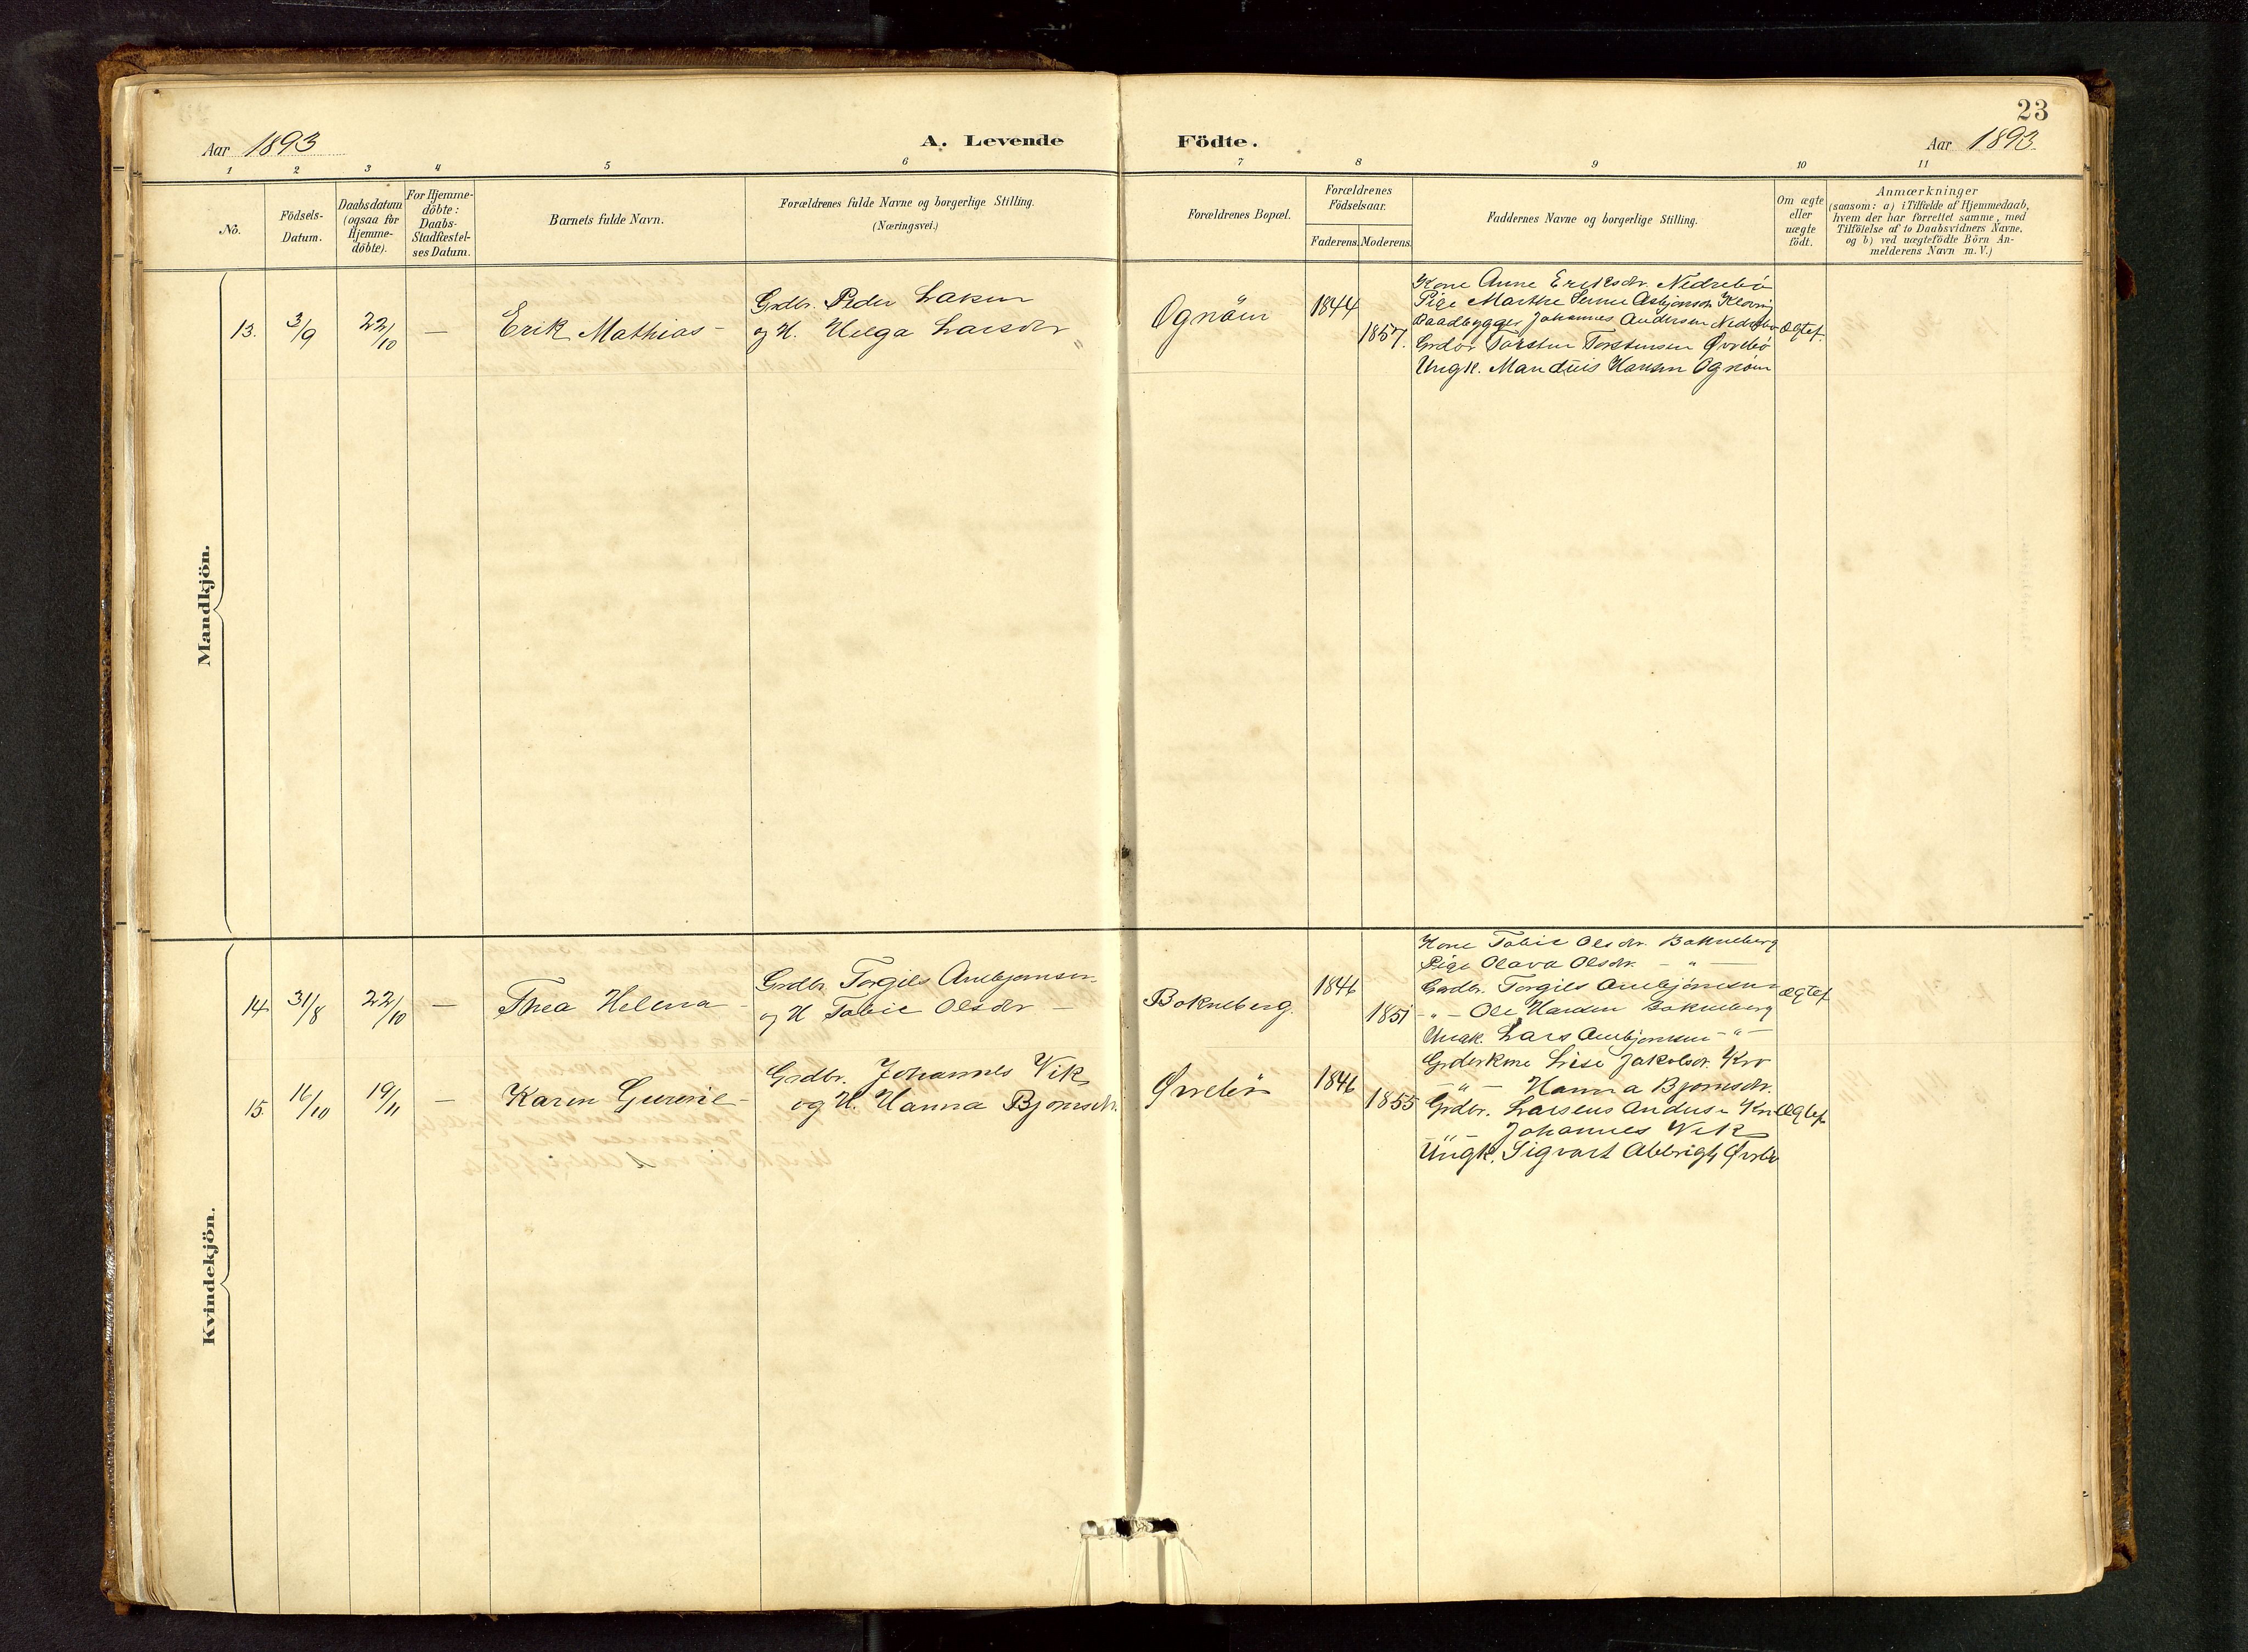 23
Aar 1893
A. Levende
Födte.
Aar 1893.
1 2 3 4 5 6 7 8 9 10 11
No.
Födsels-
Datum.
Daabsdatum
(ogsaa for
Hjemme-
döbte).
For Hjemme-
döbte:
Daabs-
Stadfæstel-
ses Datum.
Barnets fulde Navn.
Forældrenes fulde Navne og borgerlige Stilling.
(Næringsvei.)
Forældrenes Bopæl.
Forældrenes
Födselsaar.
Faderens. Moderens.
Faddernes Navne og borgerlige Stilling.
Om ægte
eller
uægte
födt.
Anmærkninger
(saasom: a) i Tilfælde af Hjemmedaab,
hvem der har forrettet samme, med
Tilföielse af to Daabsvidners Navne,
og b) ved uægtefödte Börn An-
melderens Navn m. V.)
Mandkjön.
13. 3/9 22/10 — Erik Mathias -
Grdbr. Peder Larsen
og H. Helga Larsdr
Ognöen
1844
1857.
Kone Anne Eriksdr. Nedrebö
Pige Marthe Asbjørnsdr.
Baadbygger Johannes Andersen Nedrebö
Grdbr Torsten Torstensen Øvrebö
Ungk. Mandius Hansen Ognöen
Ægtef.
Kvindekjön.
14 31/8 22/10 — Thea Helena -
Grdbr. Torgils Arnbjørnsen
og H Tobie Olsdr —
Bokneberg.
1846
1851
Kone Tobie Olsdr. Bokneberg
Pige Olava Olsdr. — " —
Gardbr. Torgils Arnbjörnsen
- " - Ole Hansen Bokneberg
Ungk. Lars Arnbjørnsen - " -
Ægtef
15 16/10 19/11 — Karen Gurine -
Grdbr. Johannes Vik
og H. Hanna Bjørnsdr.
Øvrebö
1846
1855
Grderkone Lise Jakobsdr. Kro
- " - Hanna Bjørnsdr.
Grdbr. Larsens Anders Kro
- " - Johannes Vik
Ungk. Sigvart Øvrebö
Ægtef